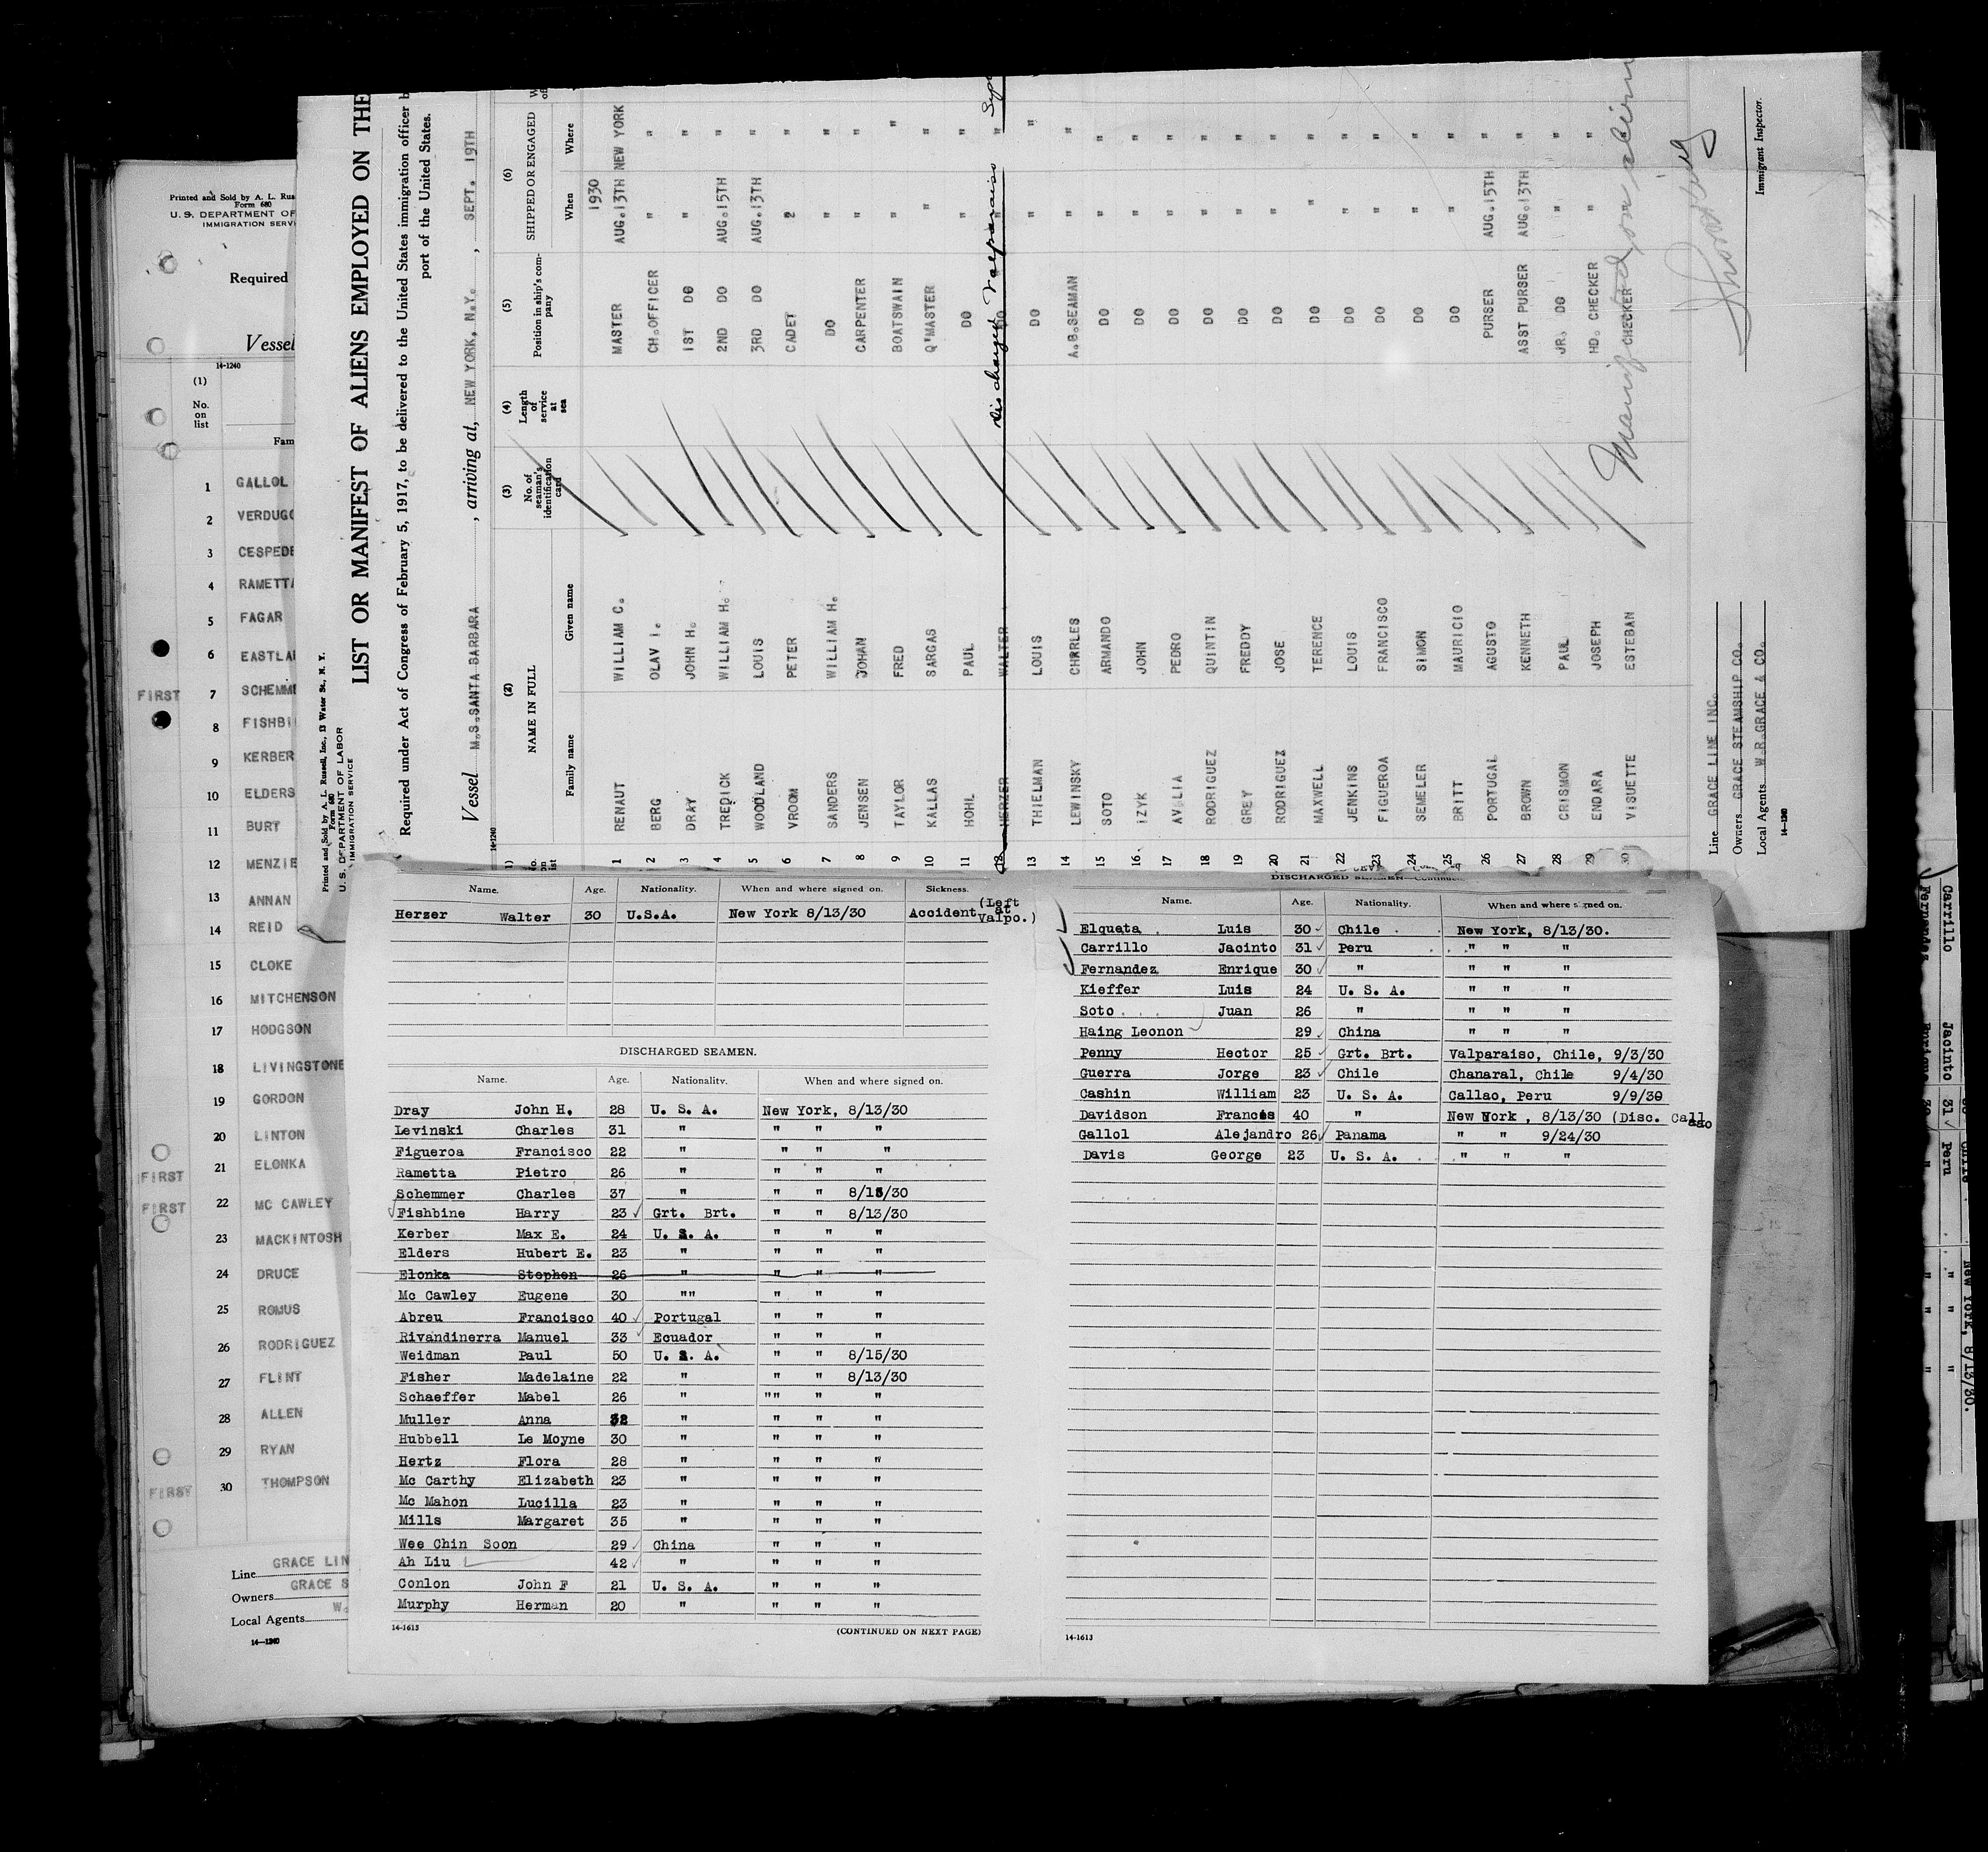 Printed and Sold by A. L. Rus
Form 680
U. S. DEPARTMENT OF
IMMIGRATION SERV
Required
Vessel
14-1240
(1)
No.
on
list
Fam
1 GALLOL
2 VERDUGO
3 CESPEDE
4 RAMETTA
5 FAGAR
6 EASTLA
FIRST 7 SCHEMME
8 FISHBI
9 KERBER
10 ELDERS
11 BURT
12 MENZIE
13 ANNAN
14 REID
15 CLOKE
16 MITCHENSON
17 HODGSON
18 LIVINGSTONE
19 GORDON
20 LINTON
FIRST 21 ELONKA
FIRST 22 MC CAWLEY
23 MACKINTOSH
24 DRUCE
25 ROMUS
26 RODRIGUEZ
27 FLINT
28 ALLEN
29 RYAN
FIRST 30 THOMPSON
Line GRACE LIN
Owners GRACE S
Local Agents W.
14-1240
Printed and Sold by A. L. Russell, Inc., 13 Water St., N. Y.
Form 680
U. S. DEPARTMENT OF LABOR
IMMIGRATION SERVICE
LIST OR MANIFEST OF ALIENS EMPLOYED ON THE
Required under Act of Congress of February 5, 1917, to be delivered to the United States immigration officer b
port of the United States.
Vessel M.S.SANTA BARBARA, arriving at, NEW YORK, N.Y., SEPT. 19TH
14-1240
(2) (3) (4) (5) (6)
NAME IN FULL No. of seaman's identification card Length of service at sea Position in ship's company SHIPPED OR ENGAGED
Family name Given name When Where
1930
1 RENAUT WILLIAM C. MASTER AUG.13TH NEW YORK
2 BERG OLAV I. CH.OFFICER " "
3 DRAY JOHN H. 1ST DO " "
4 TREDICK WILLIAM H. 2ND DO AUG.15TH "
5 WOODLAND LOUIS 3RD DO AUG.13TH "
6 VROOM PETER CADET " "
7 SANDERS WILLIAM H. DO " "
8 JENSEN JOHAN CARPENTER " "
9 TAYLOR FRED BOATSWAIN " "
10 KALLAS SARGAS Q'MASTER " "
11 HOHL PAUL DO " "
12 HERZER WALTER DO " "
discharged Valparaiso
13 THIELMAN LOUIS DO " "
14 LEWINSKY CHARLES A.B.SEAMAN " "
15 SOTO ARMANDO DO " "
16 IZYK JOHN DO " "
17 AVALIA PEDRO DO " "
18 RODRIGUEZ QUINTIN DO " "
19 GREY FREDDY DO " "
20 RODRIGUEZ JOSE DO " "
21 MAXWELL TERENCE DO " "
22 JENKINS LOUIS DO " "
23 FIGUEROA FRANCISCO DO " "
24 SEMELER SIMON DO " "
25 BRITT MAURICIO DO " "
26 PORTUGAL AGUSTO PURSER AUG.15TH "
27 BROWN KENNETH ASST PURSER AUG.13TH "
28 CRISMON PAUL JR. DO " "
29 ENDARA JOSEPH HD. CHECKER " "
30 VISUETTE ESTEBAN CHECKER
Line GRACE LINE INC.
Owners GRACE STEAMSHIP CO.
Local Agents W.R.GRACE & CO.
14-1240
Immigrant Inspector.
Name. Age. Nationality. When and where signed on. Sickness.
Herzer Walter 30 U.S.A. New York 8/13/30 Accident (Left at Valpo.)
DISCHARGED SEAMEN.
Name. Age. Nationality. When and where signed on.
Dray John H. 28 U. S. A. New York, 8/13/30
Levinski Charles 31 " " " "
Figueroa Francisco 22 " " " "
Rametta Pietro 26 " " " "
Schemmer Charles 37 " " " 8/15/30
Fishbine Harry 23 Grt. Brt. " " 8/13/30
Kerber Max E. 24 U. S. A. " " "
Elders Hubert E. 23 " " " "
Elonka Stephen 26 " " " "
Mc Cawley Eugene 30 "" " " "
Abreu Francisco 40 Portugal " " "
Rivandinerra Manuel 33 Ecuador " " "
Weidman Paul 50 U. S. A. " " 8/15/30
Fisher Madelaine 22 " " " 8/13/30
Schaeffer Mabel 26 " "" " "
Muller Anna 32 " " " "
Hubbell Le Moyne 30 " " " "
Hertz Flora 28 " " " "
Mc Carthy Elizabeth 23 " " " "
Mc Mahon Lucilla 23 " " " "
Mills Margaret 35 " " " "
Wee Chin Soon 29 China " " "
Ah Liu 42 " " " "
Conlon John F 21 U. S. A. " " "
Murphy Herman 20 " " " "
14-1613
(CONTINUED ON NEXT PAGE)
DISCHARGED SEAMEN—Continued
Name. Age. Nationality. When and where signed on.
Elqueta Luis 30 Chile New York, 8/13/30.
Carrillo Jacinto 31 Peru " " "
Fernandez Enrique 30 " " " "
Kieffer Luis 24 U. S. A. " " "
Soto Juan 26 " " " "
Haing Leonon 29 China " " "
Penny Hector 25 Grt. Brt. Valparaiso, Chile, 9/3/30
Guerra Jorge 23 Chile Chanaral, Chile 9/4/30
Cashin William 23 U. S. A. Callao, Peru 9/9/30
Davidson Francis 40 " New York, 8/13/30 (Disc. Callao
Gallol Alejandro 26 Panama " " 9/24/30
Davis George 23 U. S. A. " " "
14-1613
Carrillo Jacinto 31 Peru " " "
New York, 8/13/30.